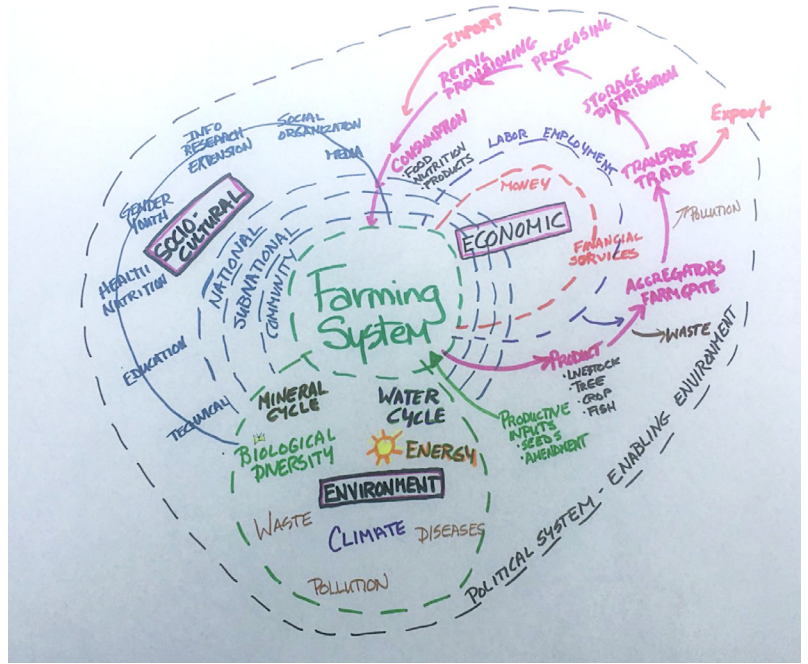 IMPORT
RETAIL
PROVISIONING
PROCESSING
STORAGE
DISTRIBUTION
Export
TRANSPORT
TRADE
POLLUTION
AGGREGATORS
FARMGATE
WASTE
CONSUMPTION
• FOOD
NUTRITION
• PRODUCTS
LABOR EMPLOYMENT
MONEY
ECONOMIC
FINANCIAL
SERVICES
INFO
RESEARCH
EXTENSION
SOCIAL
ORGANIZATION
MEDIA
GENDER
YOUTH
SOCIO-
CULTURAL
HEALTH
NUTRITION
EDUCATION
TECHNICAL
NATIONAL
SUBNATIONAL
COMMUNITY
Farming
System
PRODUCT
• LIVESTOCK
• TREE
• CROP
• FISH
PRODUCTIVE
INPUTS
• SEEDS
• AMENDMENT
MINERAL
CYCLE
WATER
CYCLE
BIOLOGICAL
DIVERSITY
ENERGY
ENVIRONMENT
WASTE
CLIMATE
DISEASES
POLLUTION
POLITICAL SYSTEM - ENABLING ENVIRONMENT